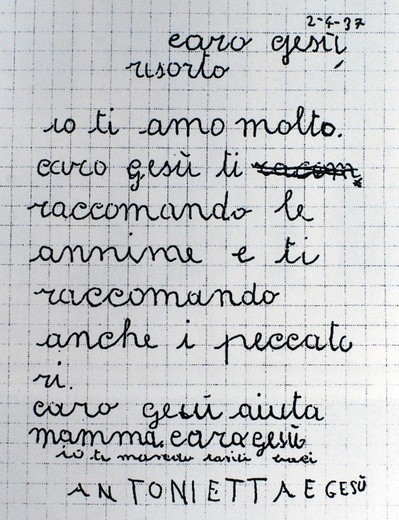 2-4-37
caro gesù
risorto
io ti amo molto.
caro gesù ti racom
raccomando le
annime e ti
raccomando
anche i peccato
ri.
caro gesù aiuta
mamma. caro gesù
io ti mando baci
ANTONIETTA E GESÙ